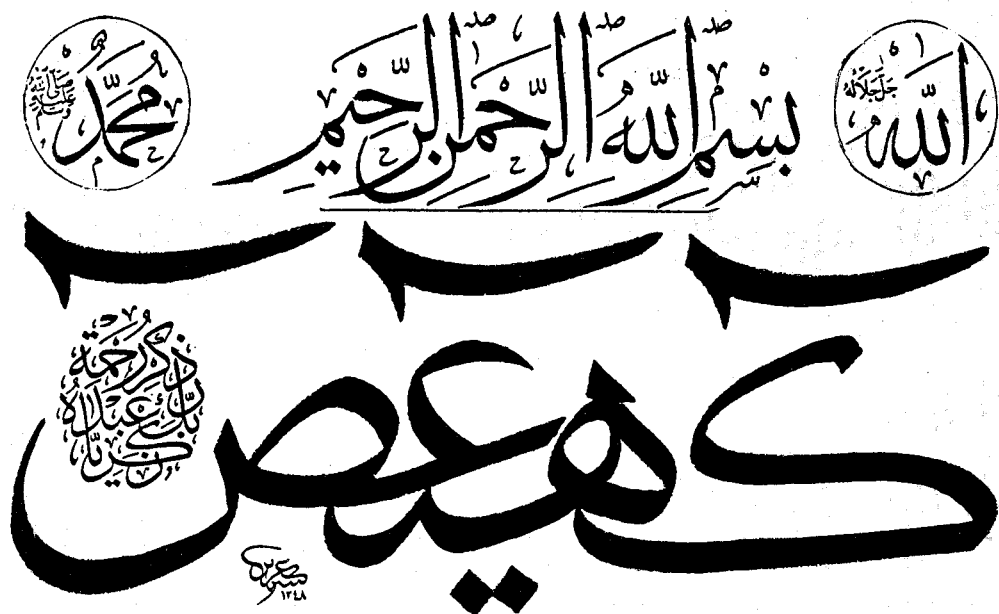 الله جل جلاله
بِسْمِ اللهِ الرَّحْمٰنِ الرَّحِيمِ
مُحَمَّد صلى الله عليه وسلم
كٓهيعٓصٓ
ذِكْرُ رَحْمَةِ
رَبِّكَ عَبْدَهُ
زَكَرِيَّا
١٣٤٨